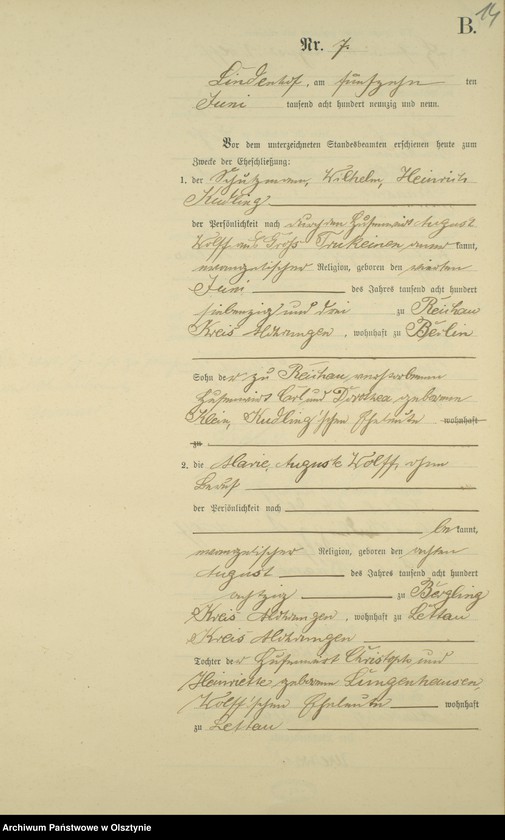 B. 14
Nr. 7.
Lindenhof, am fünfzehn ten
Juni tausend acht hundert neunzig und neun.
Vor dem unterzeichneten Standesbeamten erschienen heute zum
Zwecke der Eheschließung:
1. der Schutzmann, Wilhelm, Heinrich
Kudling
der Persönlichkeit nach durch den Hufenwirt August
Wolff aus Groß kannt,
evangelischer Religion, geboren den vierten
Juni des Jahres tausend acht hundert
siebenzig und drei zu Reichau
Kreis Mohrungen, wohnhaft zu Berlin
Sohn der zu Reichau verstorbenen
Hufenwirt Carl und Dorothea geborene
Klein, Kudling'schen Eheleute wohnhaft
zu
2. die Marie, Auguste Wolff, ohne
Beruf
der Persönlichkeit nach
be kannt,
evangelischer Religion, geboren den achten
August des Jahres tausend acht hundert
achtzig zu Bergling
Kreis Mohrungen, wohnhaft zu Lettau
Kreis Mohrungen
Tochter der Hufenwirt Christoph und
Henriette geborene Lungenhausen,
Wolff'schen Eheleute wohnhaft
zu Lettau
Archiwum Państwowe w Olsztynie